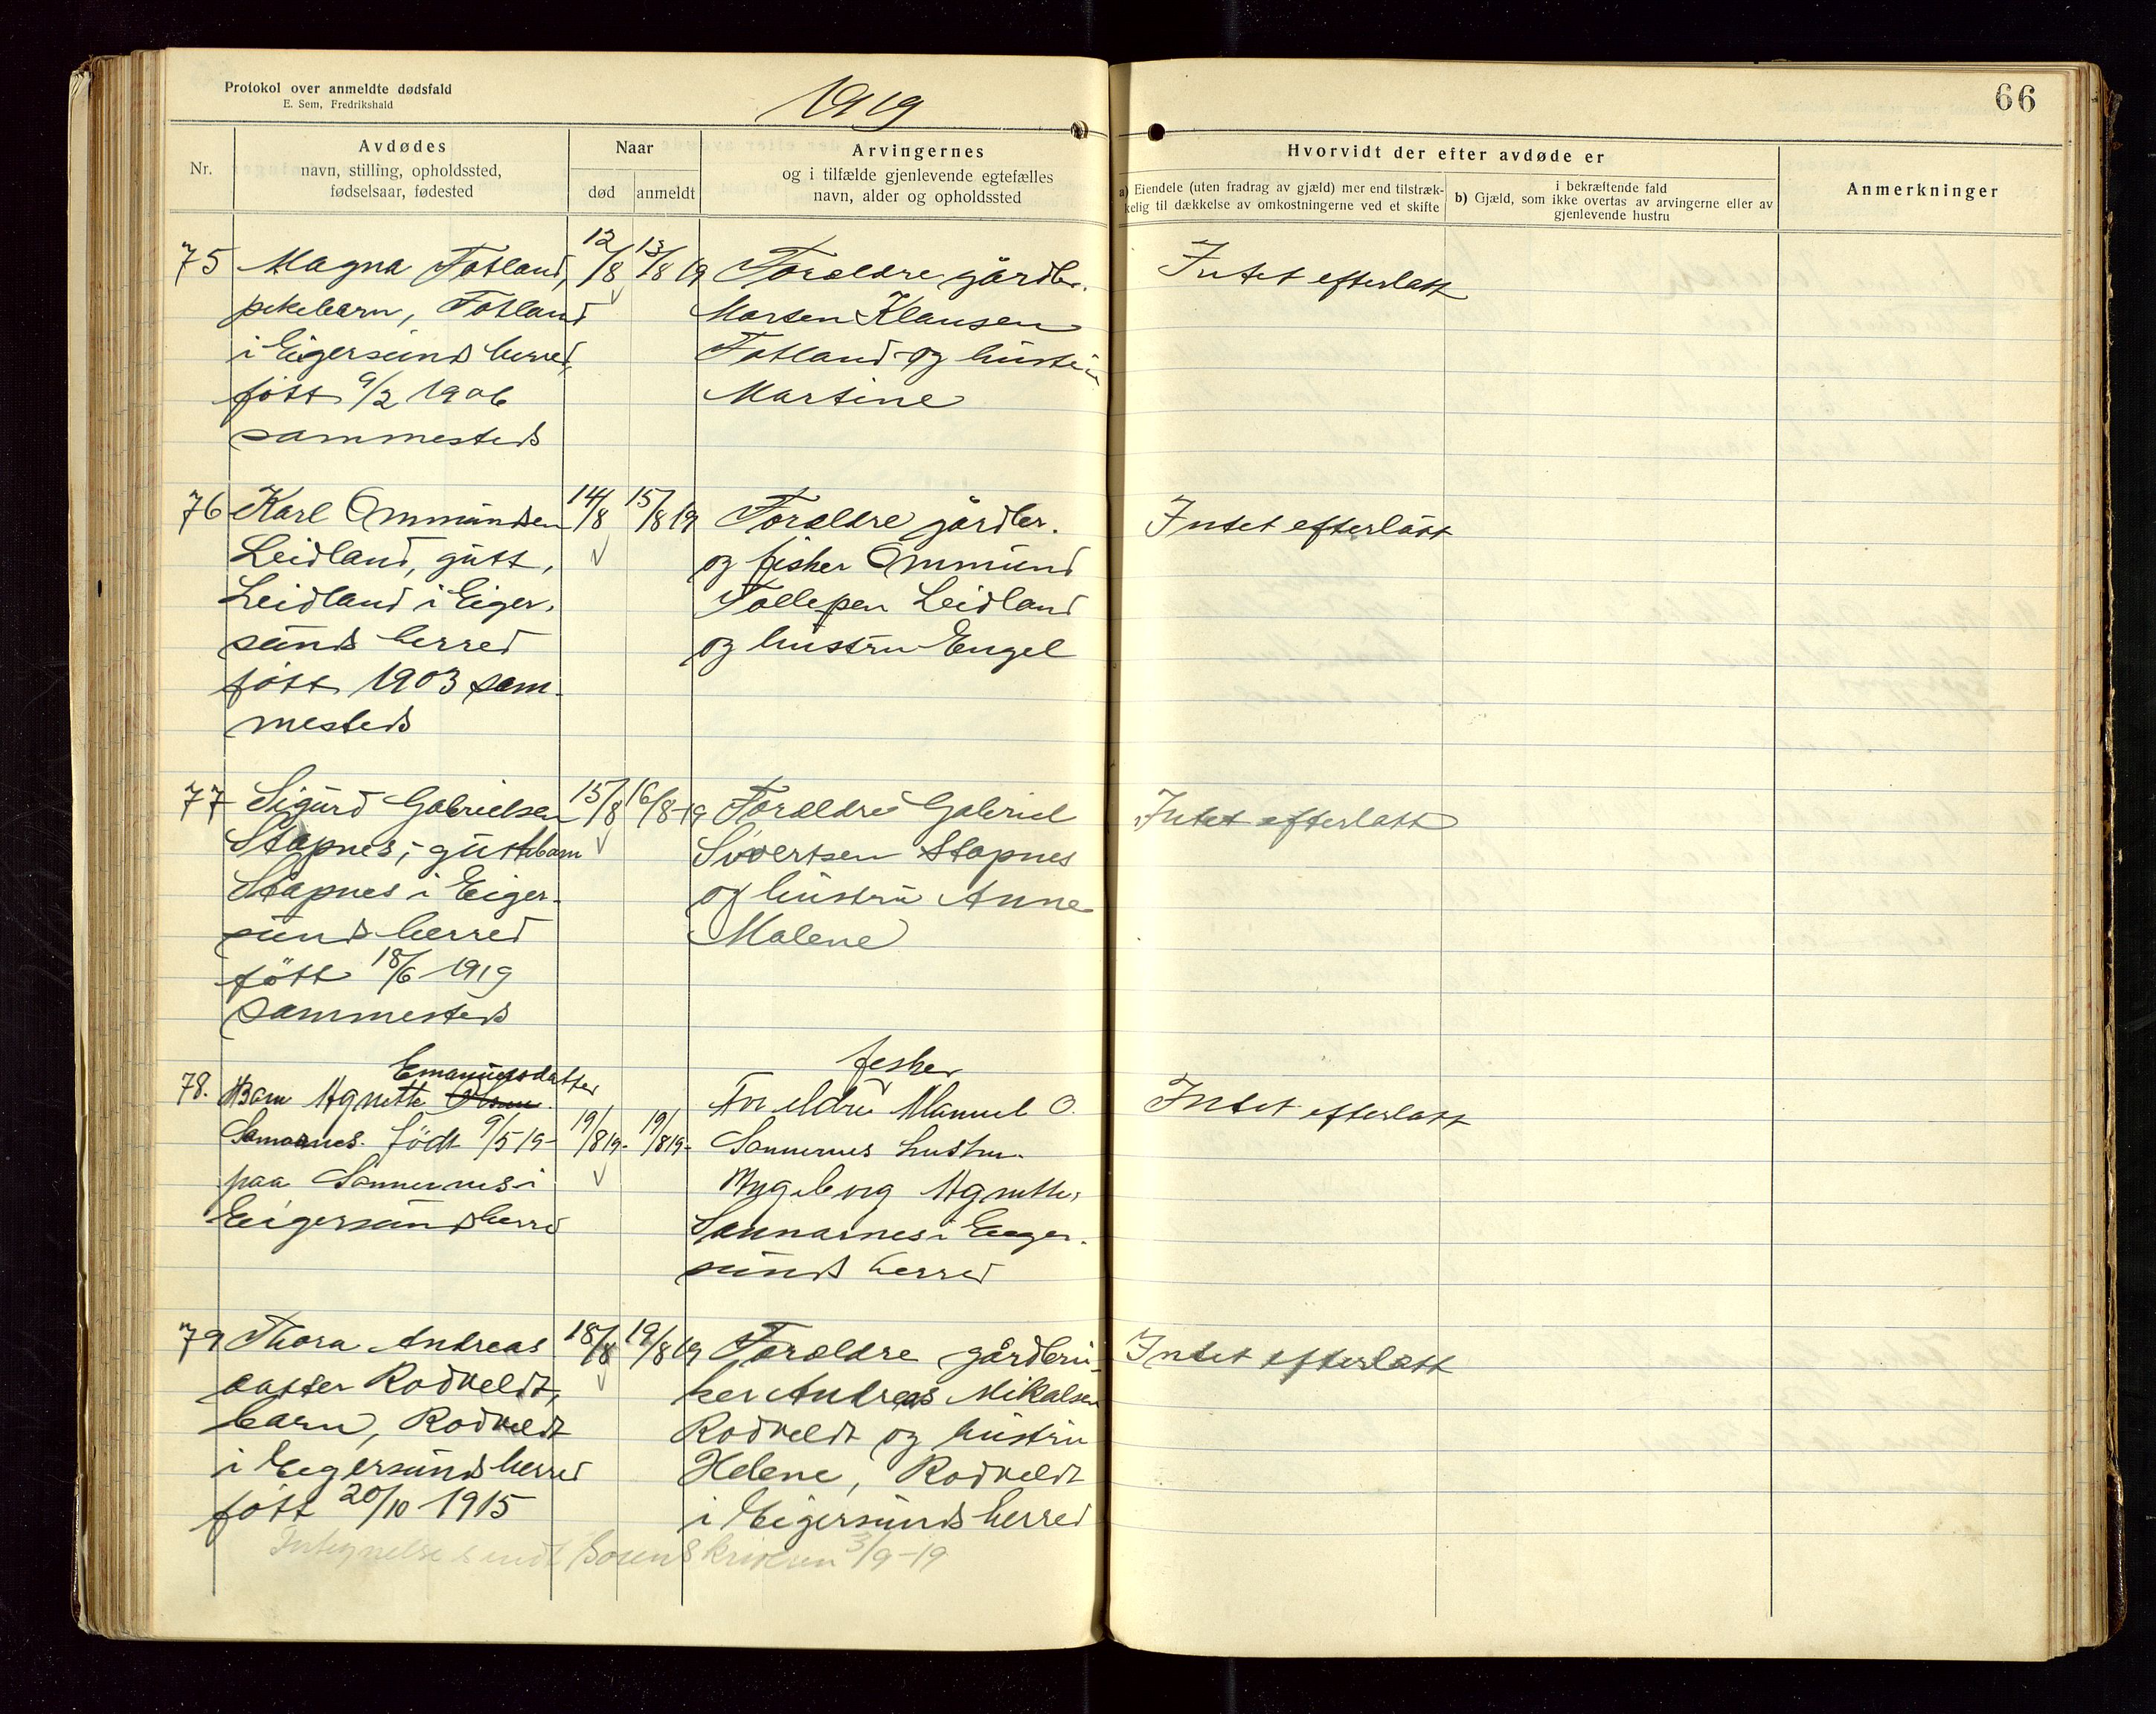 Protokol over anmeldte dødsfald
E. Sem, Fredrikshald
1919
66
Nr.
Avdødes
navn, stilling, opholdssted,
fødselsaar, fødested
Naar
død
anmeldt
Arvingernes
og i tilfælde gjenlevende egtefælles
navn, alder og opholdssted
Hvorvidt der efter avdøde er
a) Eiendele (uten fradrag av gjæld) mer end tilstræk-
kelig til dækkelse av omkostningerne ved et skifte
i bekræftende fald
b) Gjæld, som ikke overtas av arvingerne eller av
gjenlevende hustru
Anmerkninger
75
Magna Fotland,
pikebarn, Fotland
i Eigersunds herred,
født 9/2 1906
sammesteds
12/8
13/8 19
Forældre gårdbr.
Morten Klausen
Fotland og hustru
Martine
Intet efterlatt
76
Karl Ommundsen
Leidland, gutt,
Leidland i Eiger-
sunds herred
født 1903 sam-
mesteds
14/8
15/8 19
Forældre gårdbr.
og fisker Ommund
Tollefsen Leidland
og hustru Engel
Intet efterlatt
77
Sigurd Gabrielsen
Stapnes, guttebarn
Stapnes i Eiger-
sunds herred
født 18/6 1919
sammesteds
15/8
16/8-19
Forældre Gabriel
Sivertsen Stapnes
og hustru Anne
Malene
Intet efterlatt
78.
Emanuelsdatter
Barn Agnette Olsen
Samarnes. født 9/5 19-
paa Sannernes i
Eigersunds herred
19/8 19-
19/8 19-
fisker
Forældre Manuel O.
Sannernes hustru
Ingeborg Agnette,
Sannarnes i Eiger-
sunds herred
Intet efterlatt
79
Thora Andreas
datter Rodveldt,
barn, Rodveldt
i Eigersunds herred
født 20/10 1915
18/8
19/8 19
Forældre gårdbru-
ker Andreas Mikalsen
Rodveldt og hustru
Helene, Rodveldt
i Eigersunds herred
Intet efterlatt
sendt Sorenskriveren 3/9-19